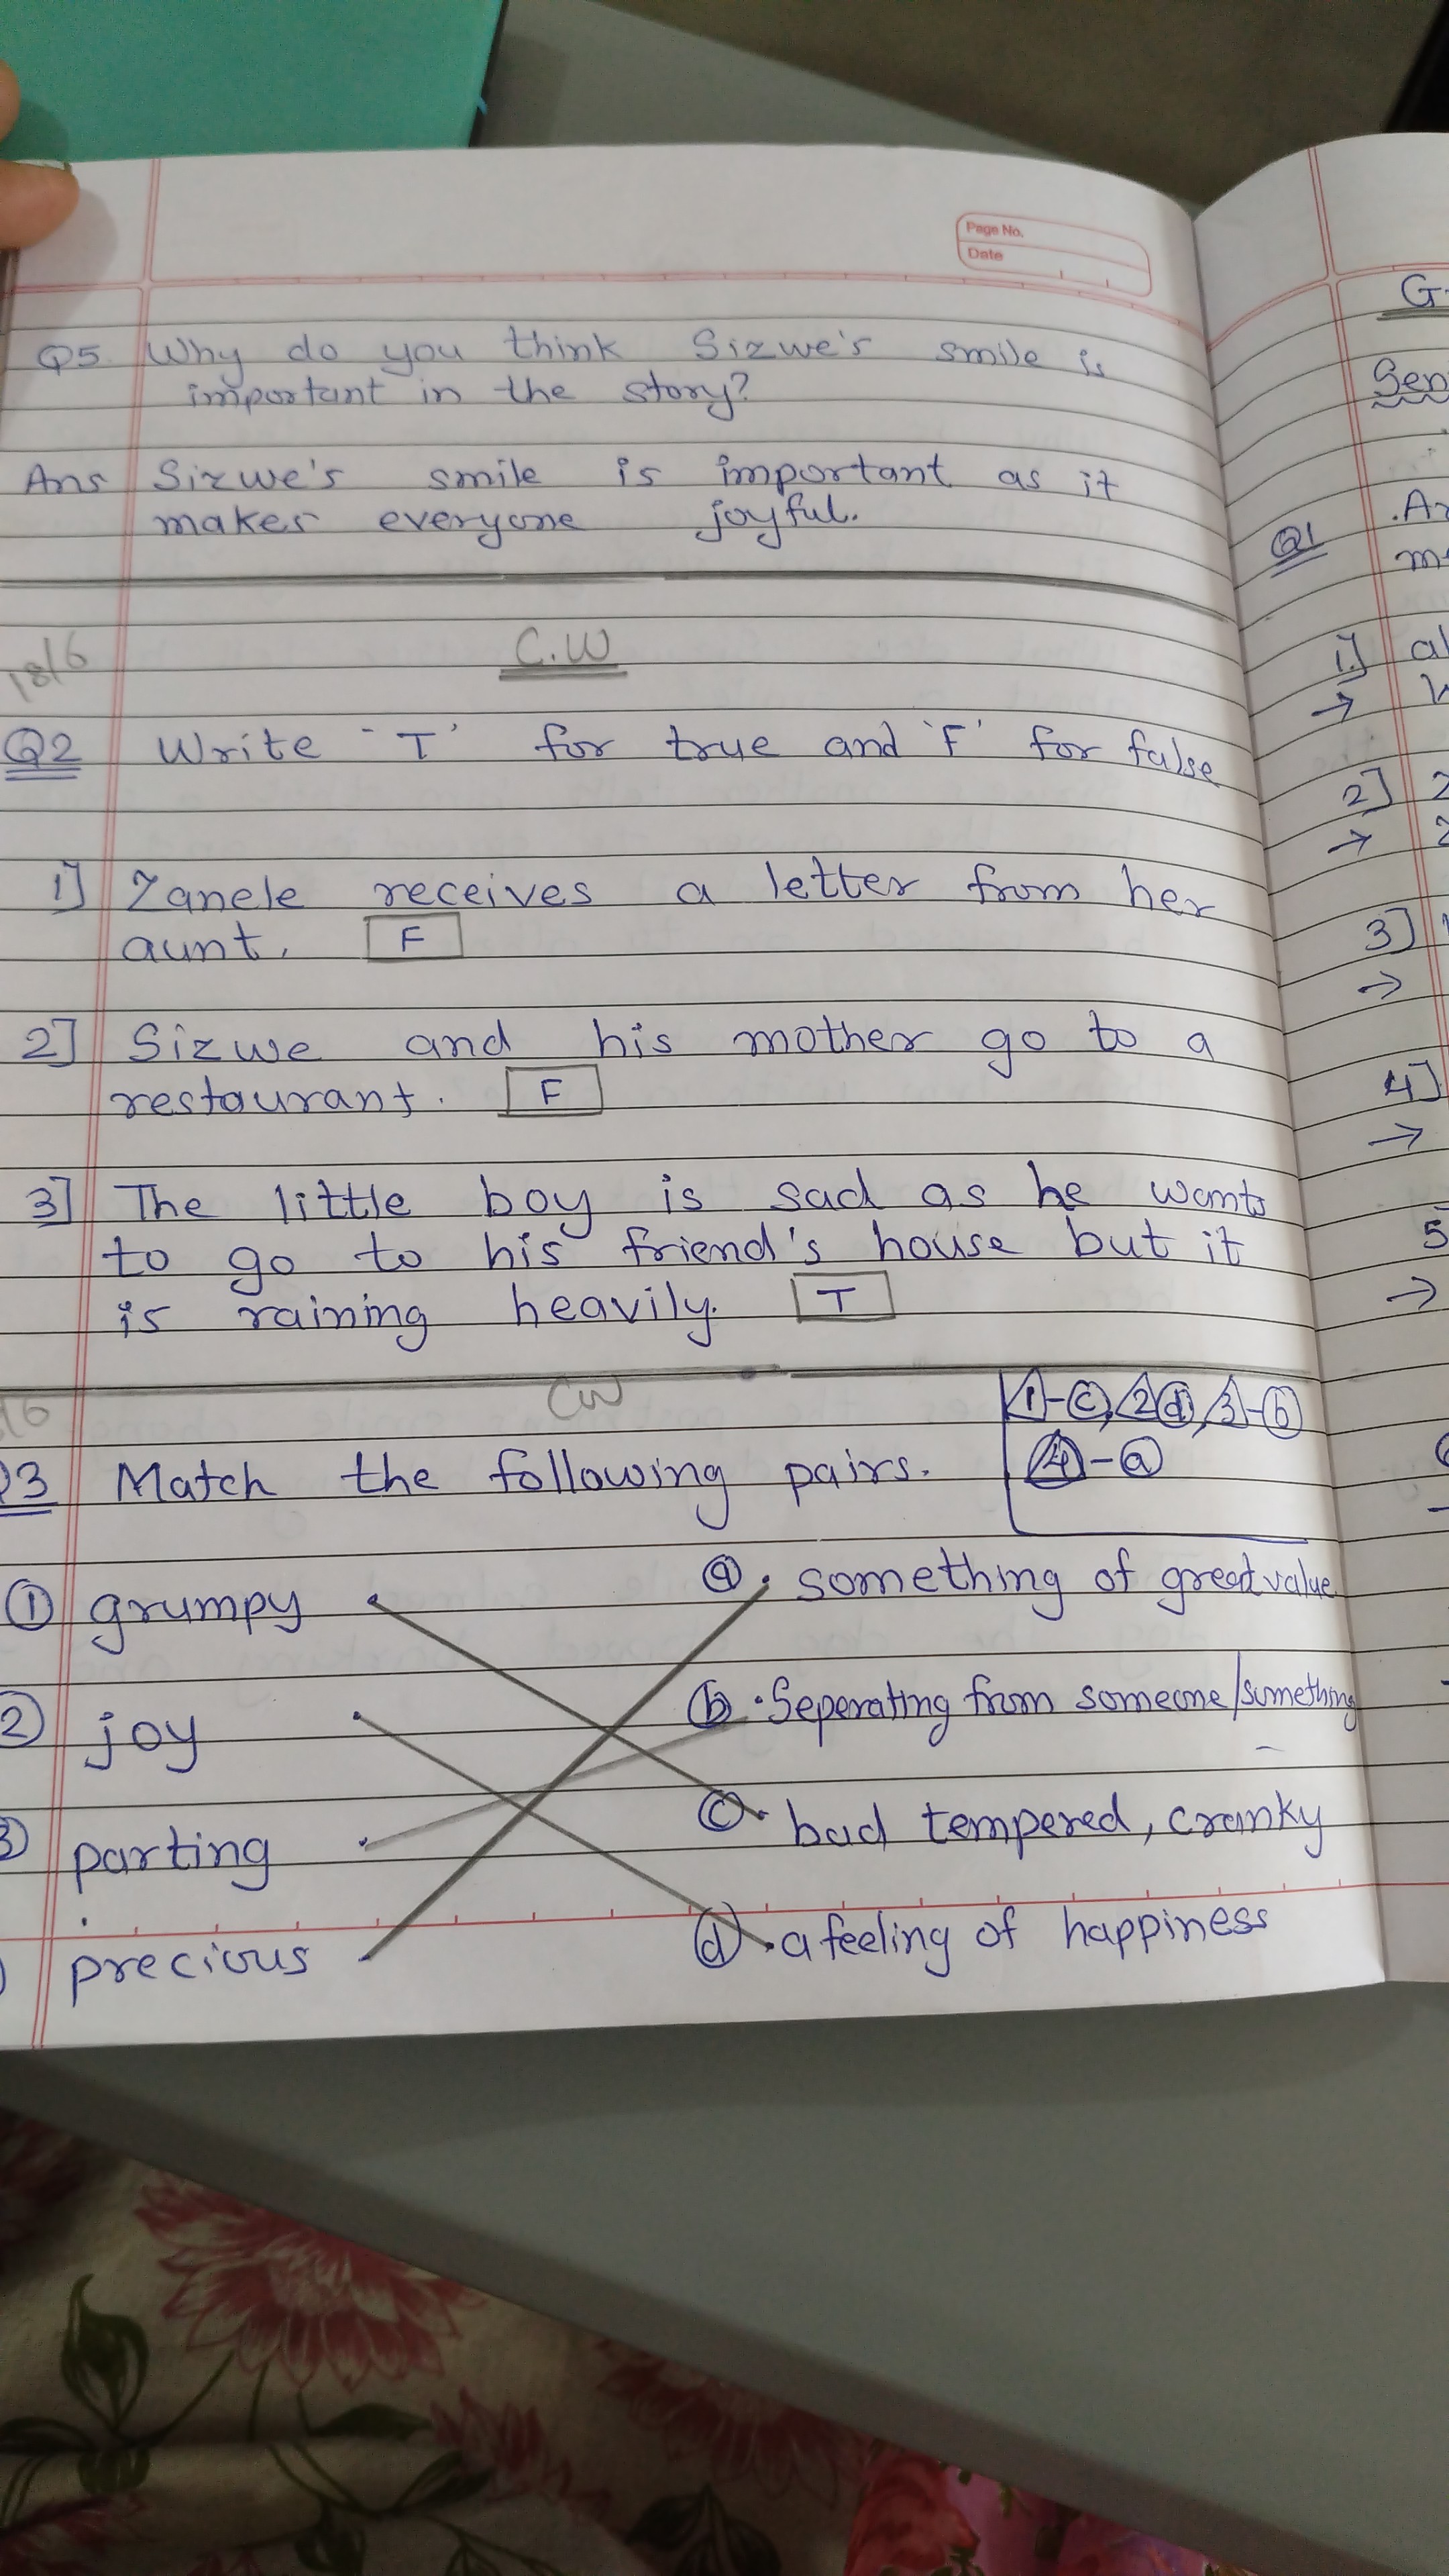 Page No.
Date
Q5. Why do you think Sizwe's smile is
important in the story?
Ans Sizwe's smile is important as it
makes everyone joyful.
18/6
C.W
Q2 Write 'T' for true and 'F' for false
1] Zanele receives a letter from her
aunt. F
2] Sizwe and his mother go to a
restaurant. F
3] The little boy is sad as he wants
to go to his friend's house but it
is raining heavily. T
CW
1-c, 2 d, 3-b
4-a
Q3 Match the following pairs.
1 grumpy
a. something of great value
2 joy
b. Seperating from someone/something
3 parting
c. bad tempered, cranky
precious
d. a feeling of happiness
Q1
1]
→
2]
→
3]
→
4]
→
5
→